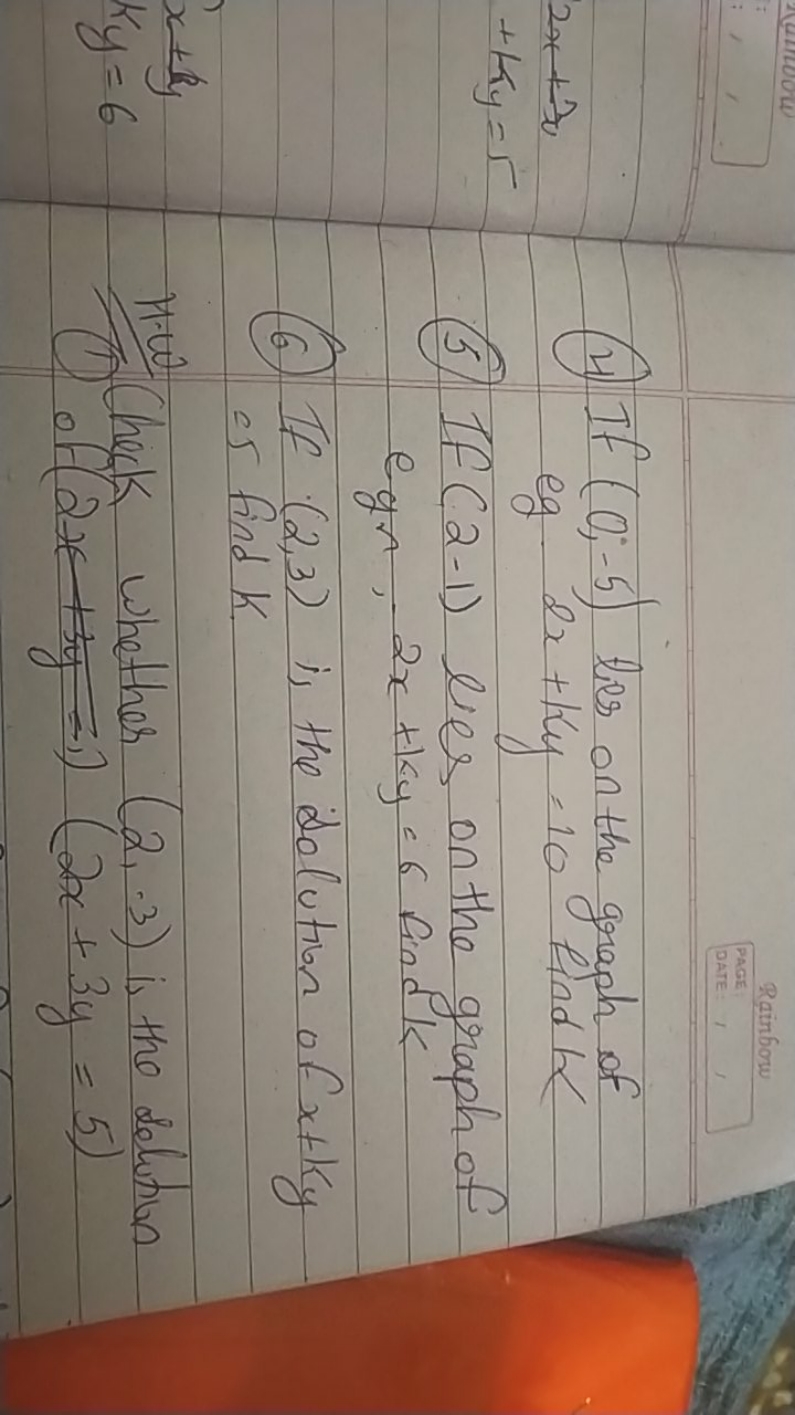 Rainbow
PAGE:
DATE: / /
④ If (0, -5) lies on the graph of
eq. 2x + Ky = 10 find K
⑤ If (2 -1) lies on the graph of
eqn, 2x + Ky = 6 find k
⑥ If (2,3) is the solution of x+Ky
=5 find K
H.W
① Check whether (2, -3) is the solution
of (2x + 3y = 5)
Rainbow
+Ky = 5
Ky = 6